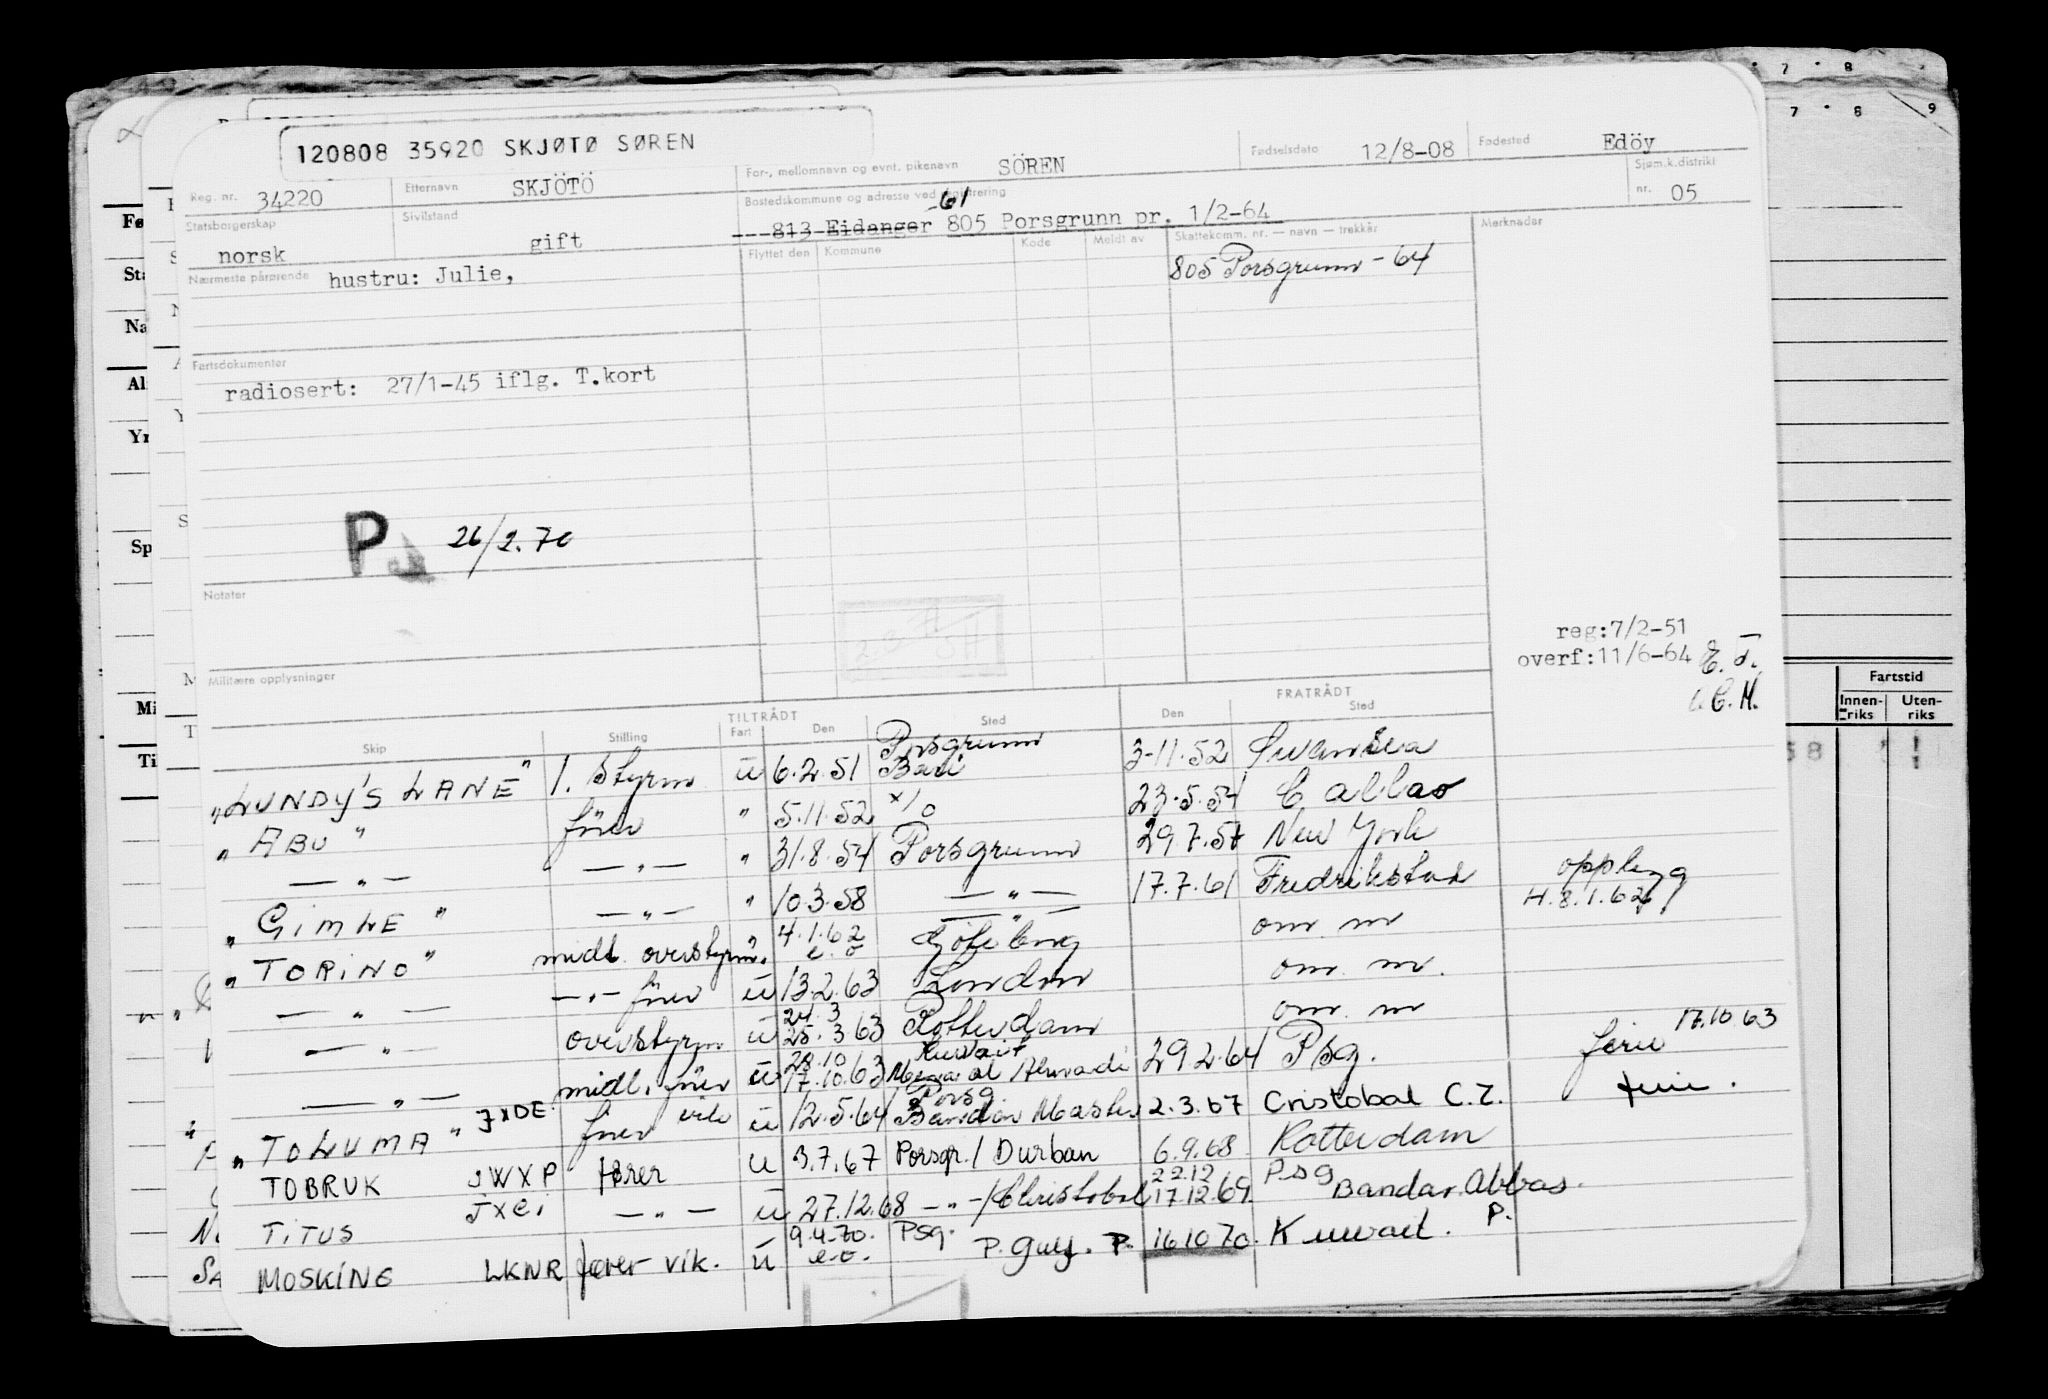 120808 35920 SKJØTØ SØREN
Reg. nr. 34220 Etternavn SKJÖTÖ For-, mellomnavn og evnt. pikenavn SÖREN Fødselsdato 12/8-08 Fødested Edöy
Statsborgerskap norsk Sivilstand gift Bostedskommune og adresse ved registrering 813 Eidanger -61 805 Porsgrunn pr. 1/2-64 Sjøm.k.distrikt nr. 05
Nærmeste pårørende hustru: Julie, Flyttet den Kommune Kode Meldt av Skattekomm. nr. — navn — trekkår Merknader
805 Porsgrunn - 64
Fartsdokumenter
radiosert: 27/1-45 iflg. T.kort
P 26/2.70
Notater
reg:7/2-51
overf:11/6-64
Militære opplysninger
TILTRÅDT FRATRÅDT
Skip Stilling Fart Den Sted Den Sted
"LUNDY'S LANE" 1. styrm ū 6.2.51 Porsgrunn Bari 3-11.52 Swansea
"ABU" förer " 5.11.52 x/o 23.5.54 Callao
— " — — " — " 31.8.54 Porsgrunn 29.7.57 New York
"GIMLE" — " — " 10.3.58 — " — 17.7.61 Fredrikstad opplegg
"TORINO" midl. overstyrm. " 4.1.62 e.o Göteborg om. m H.8.1.62
— " — — " — förer ū 13.2.63 London om. m.
— " — overstyrm ū 24.3 25.3.63 Rotterdam om. m
— " — midl. förer ū 28.10 17.10.63 Kuwait 29 2.64 Psg. ferie 17.10.63
"TOLUMA" JXDE förer ū 12.5.64 Porsg. 2.3.67 Cristobal C.Z. ferie.
TOBRUK JWXP fører ū 3.7.67 Porsgr./ Durban 6.9.68 Rotterdam
TITUS JXEI — " — ū 27.12.68 — " — /Christobal 22.12 17.12.69 Psg Bandar. Abbas.
MOSKING LKNR fører vik. ū 9.4.70. e.o. Psg. P. Gulf. P. 16.10 70. Kuwait. P.
Fartstid
Innen-riks Uten-riks